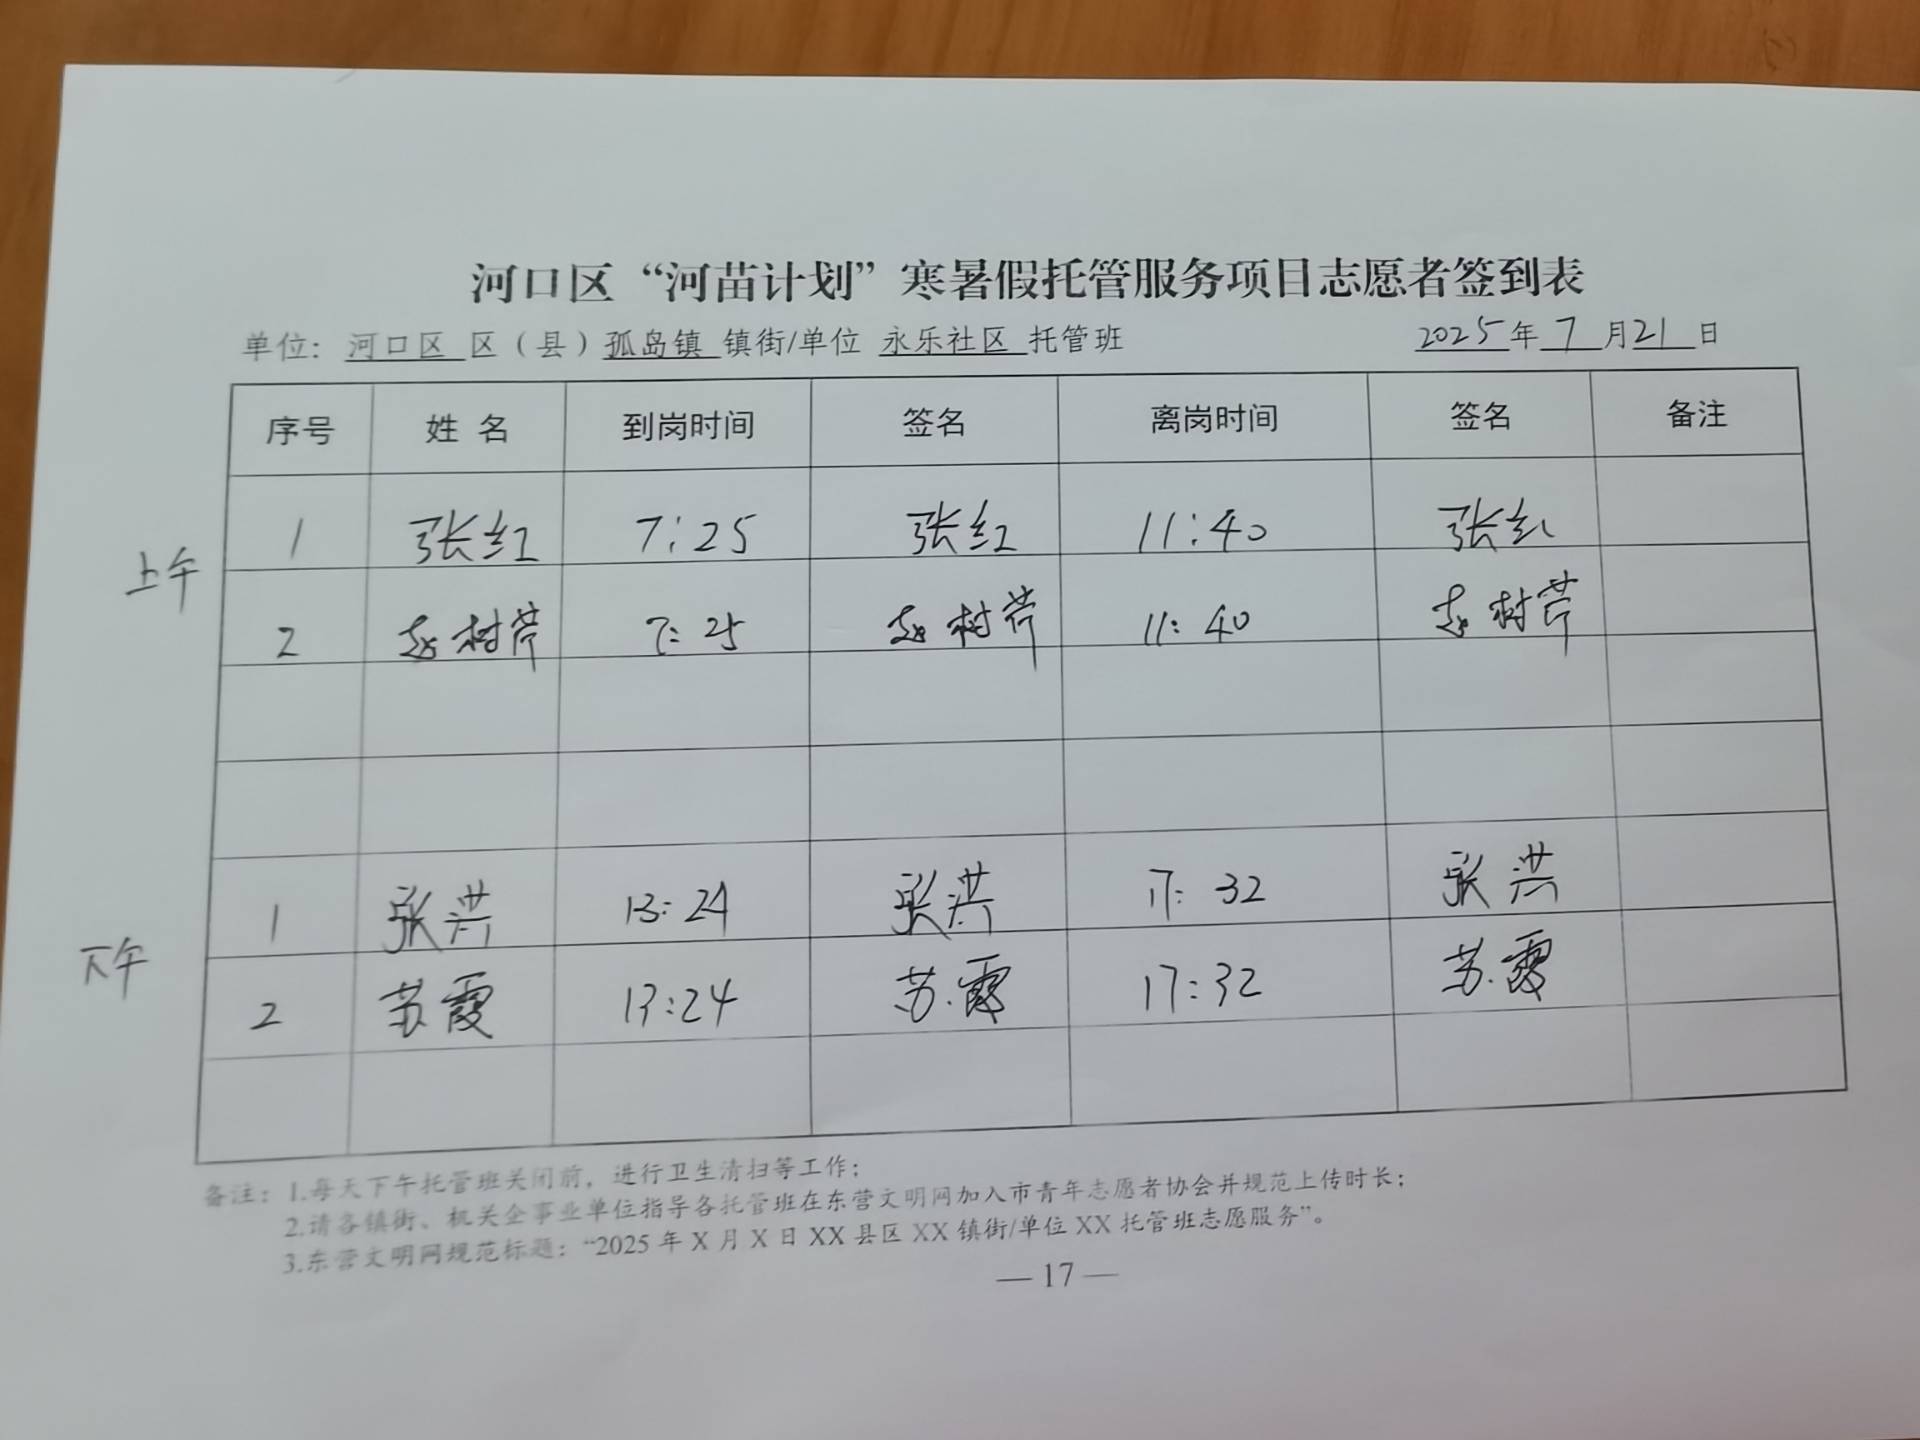 河口区“河苗计划”寒暑假托管服务项目志愿者签到表
单位：河口区 区（县）孤岛镇 镇街/单位 永乐社区 托管班 2025年 7 月21 日
序号 姓 名 到岗时间 签名 离岗时间 签名 备注
上午
1 张红 7:25 张红 11:40 张红
2 赵树芹 7:25 赵树芹 11:40 赵树芹
下午
1 张洪 13:24 张洪 17:32 张洪
2 苏霞 13:24 苏霞 17:32 苏霞
备注：1.每天下午托管班关闭前，进行卫生清扫等工作；
2.请各镇街、机关企事业单位指导各托管班在东营文明网加入市青年志愿者协会并规范上传时长；
3.东营文明网规范标题：“2025 年 X 月 X 日 XX 县区 XX 镇街/单位 XX 托管班志愿服务”。
— 17 —